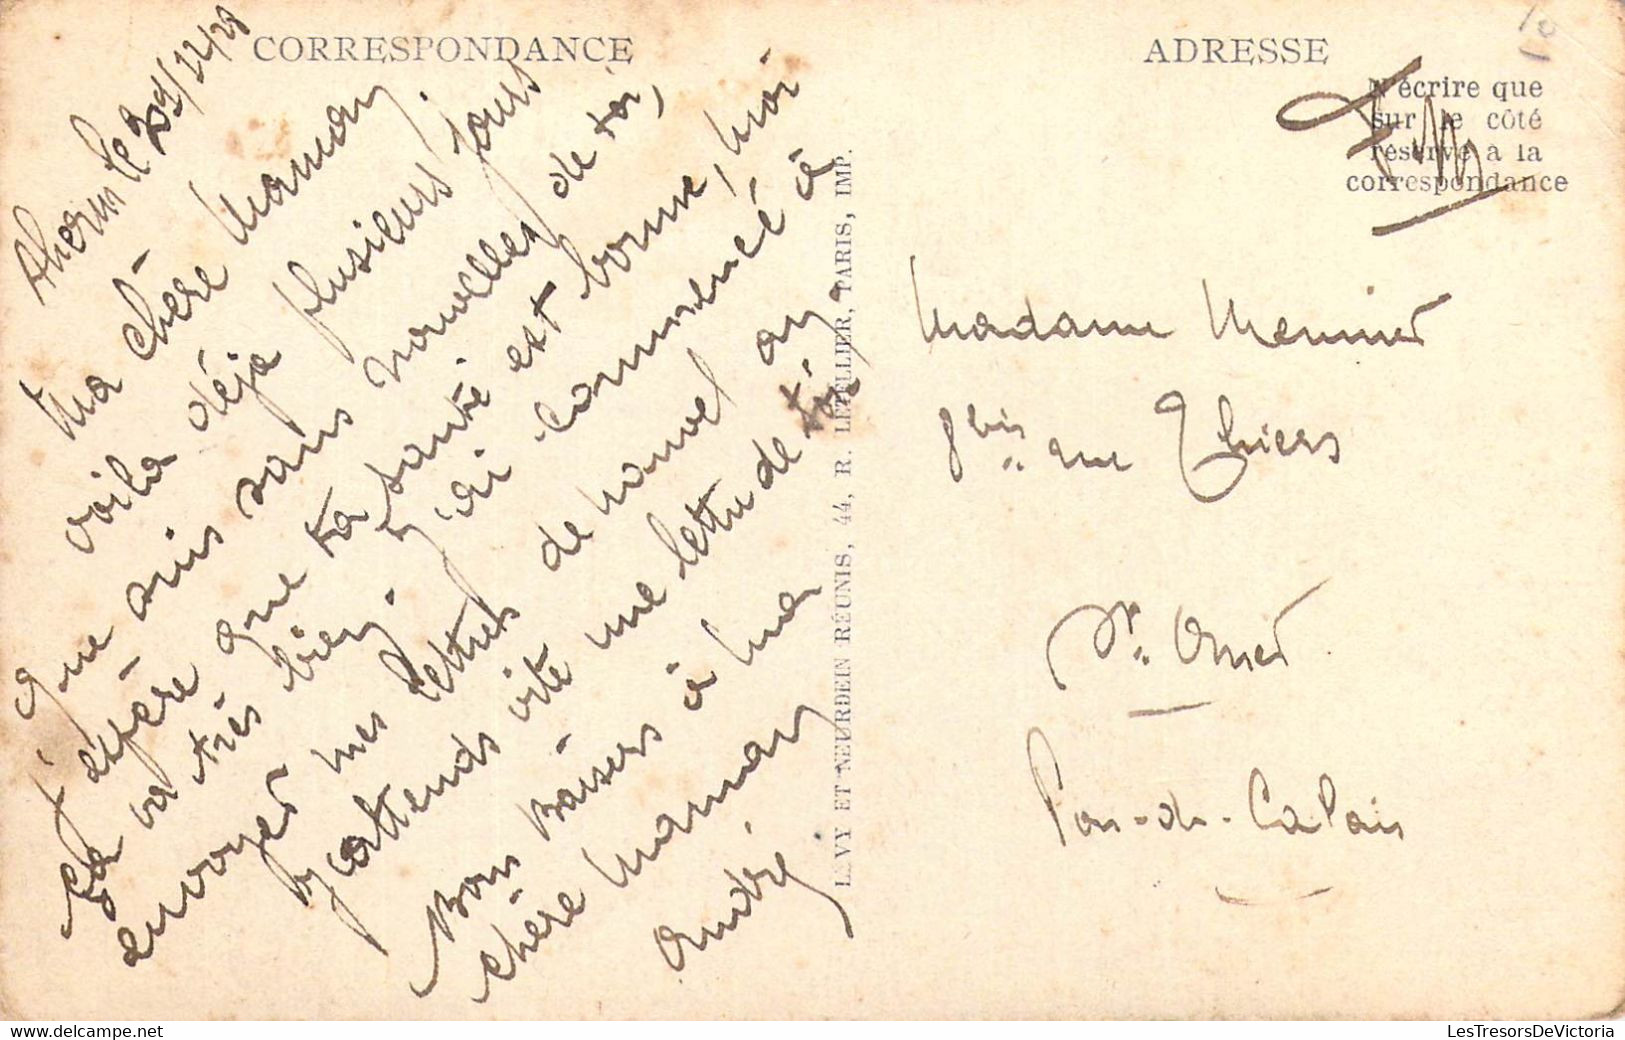 CORRESPONDANCE
le 29/12/28
Ma chère Maman,
voila déjà plusieurs jours
que suis sans nouvelles de toi,
J'espère que ta santé est bonne, moi
ça va très bien. J'ai commencé à
envoyer mes lettres de nouvel an.
J'attends vite une lettre de toi
Bons Baisers à ma
chère Maman
André.
LEVY ET NEURDEIN RÉUNIS, 44, R. LETELLIER, PARIS, IMP.
ADRESSE
N'écrire que
sur le côté
réservé à la
correspondance
F.M
Madame Meunier
8 bis rue Thiers
St. Omer
Pas-de-Calais
LesTresorsDeVictoria @ delcampe.net
LesTresorsDeVictoria